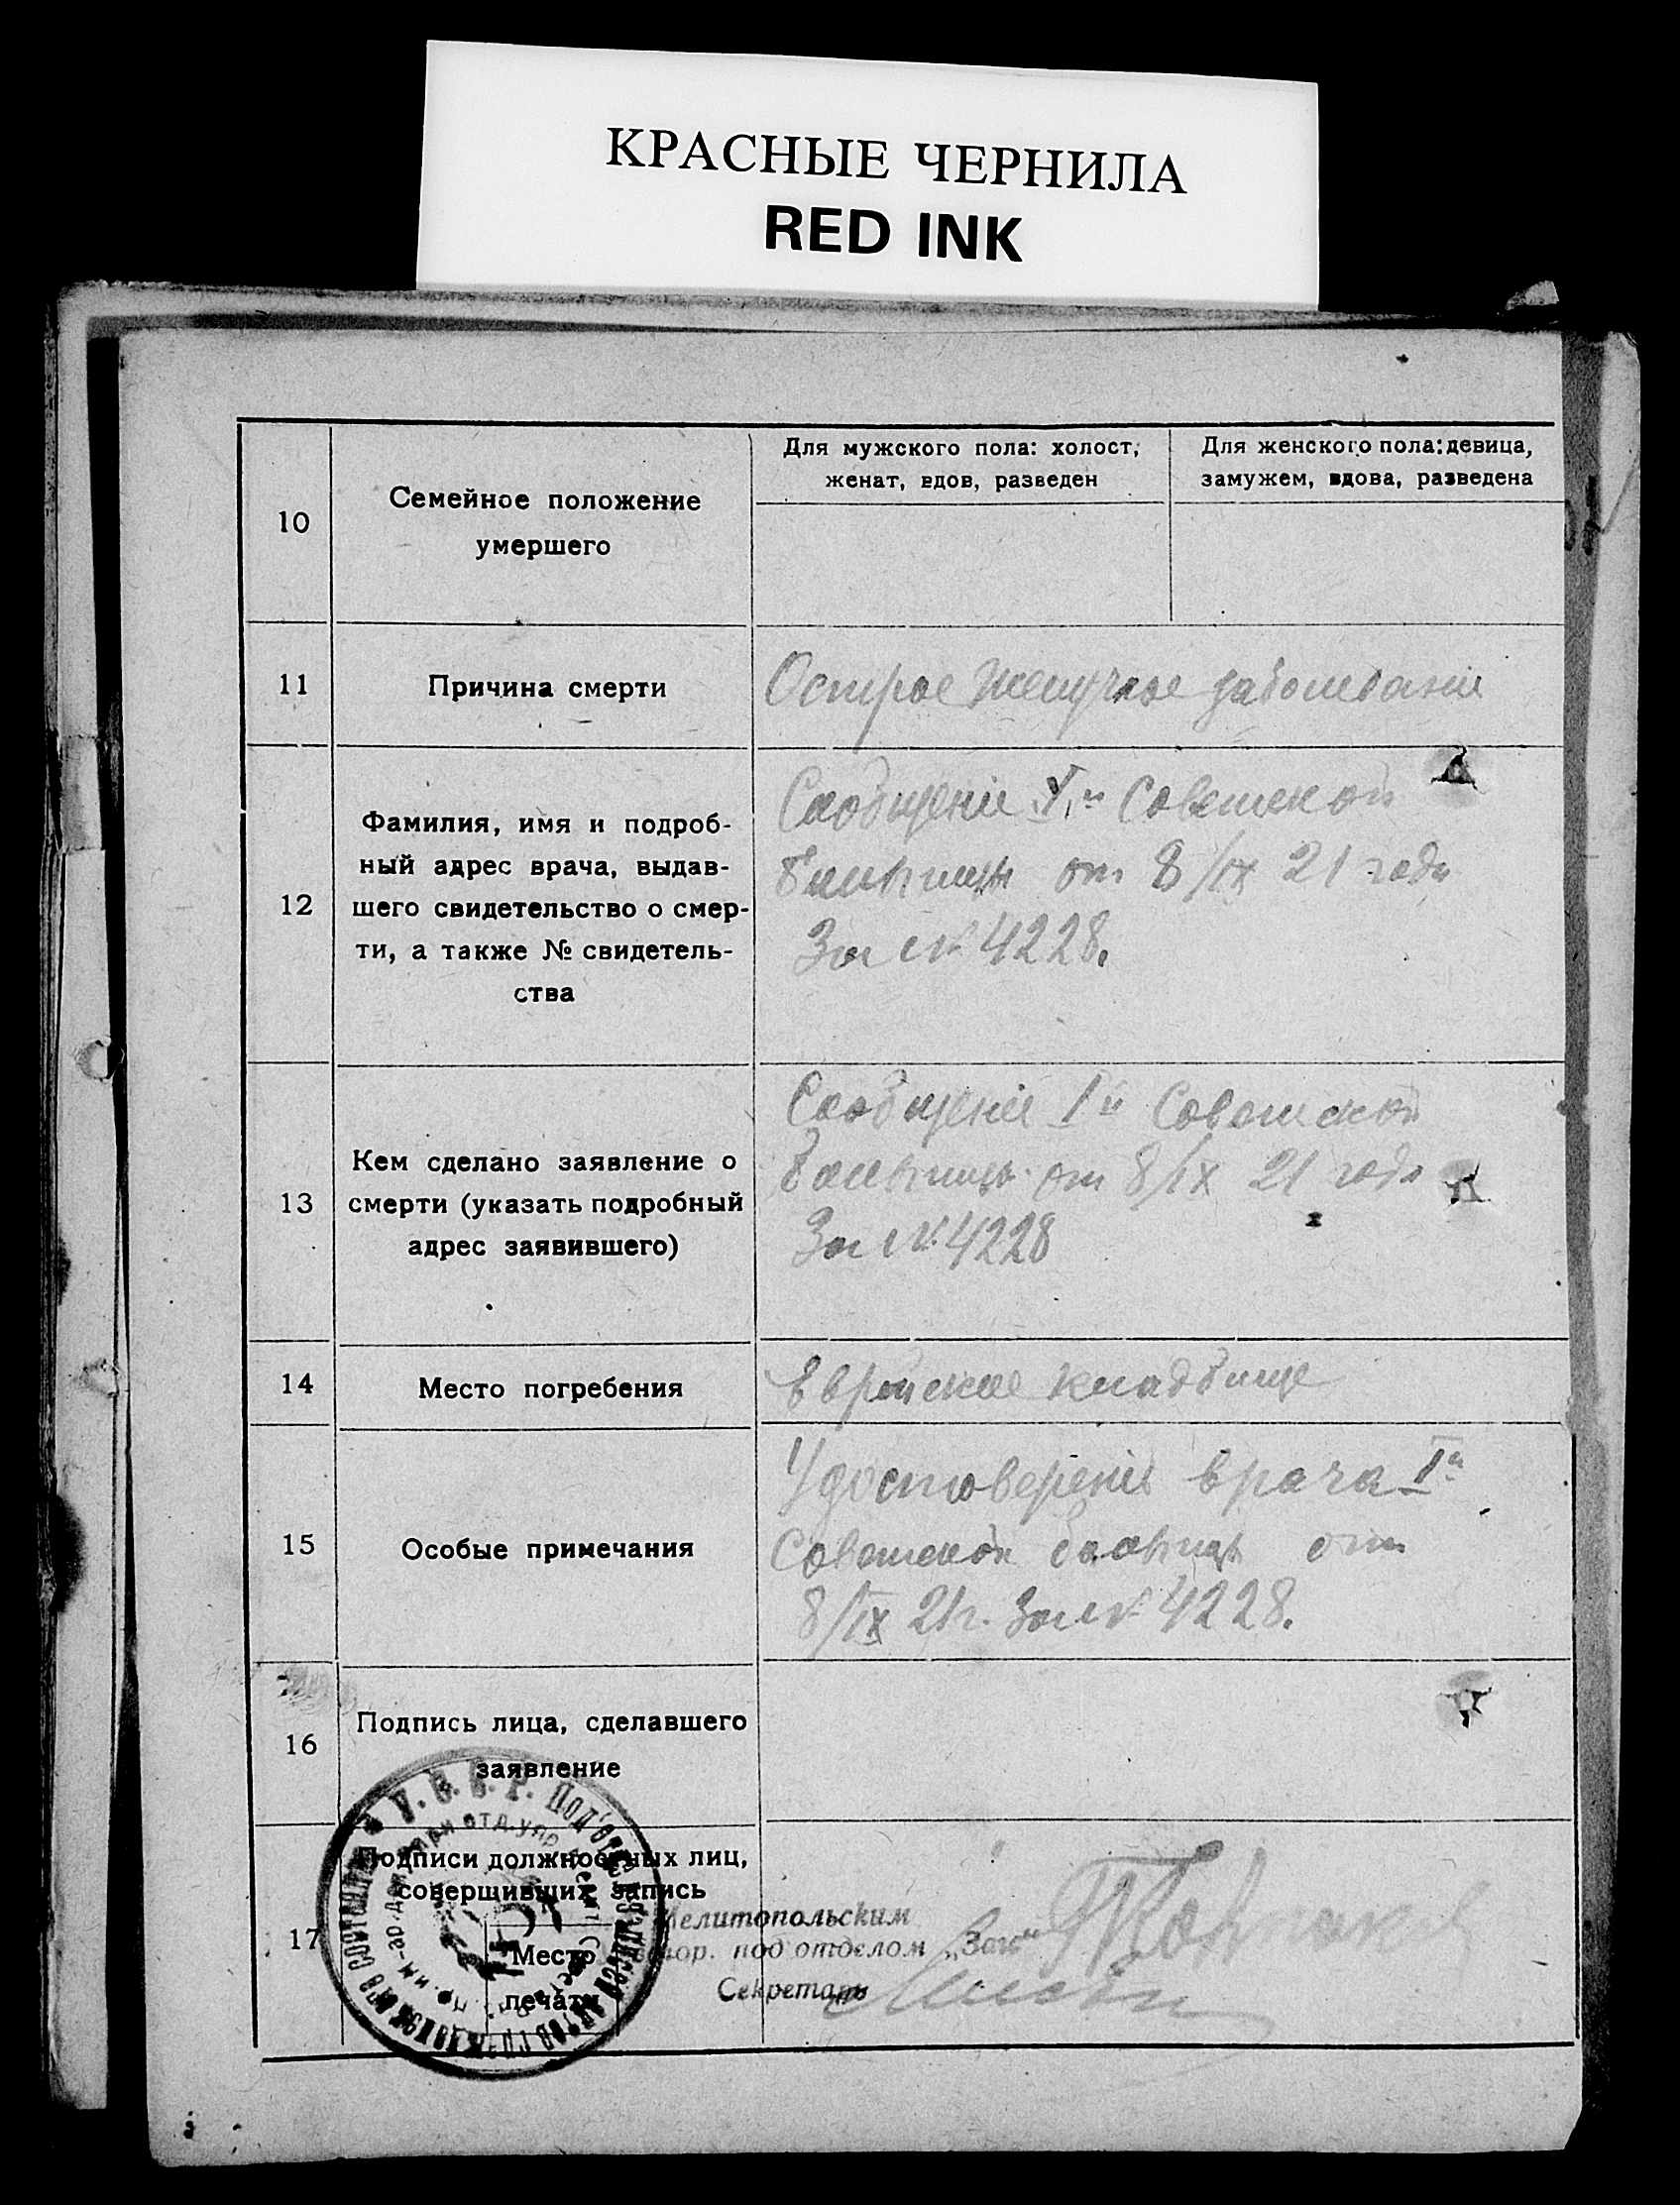 КРАСНЫЕ ЧЕРНИЛА
RED INK
10
Семейное положение
умершего
Для мужского пола: холост,
женат, вдов, разведен
Для женского пола: девица,
замужем, вдова, разведена
11
Причина смерти
Острое Желудочное заболевание
12
Фамилия, имя и подроб-
ный адрес врача, выдав-
шего свидетельство о смер-
ти, а также № свидетель-
ства
Сообщение I й Советской
больницы от 8/IX 21 года
За № 4228.
13
Кем сделано заявление о
смерти (указать подробный
адрес заявившего)
Сообщение I й Советской
больницы от 8/IX 21 года
За № 4228
14
Место погребения
Еврейское кладбище
15
Особые примечания
Удостоверение врача I й
Советской больницы от
8/IX 21 г. За № 4228.
16
Подпись лица, сделавшего
заявление
17
Подписи должностных лиц,
совершивших запись
Место
печати
У. С. С. Р. Под'отд.
Мелитопольским
под отделом „Загс“
Секретарь